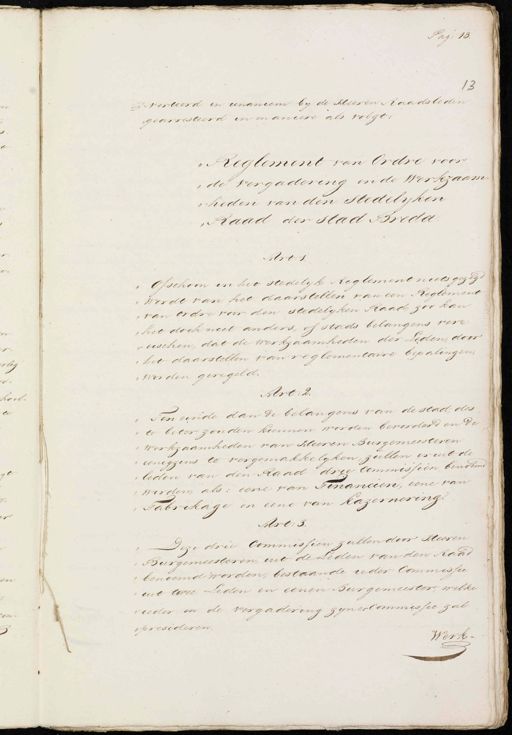 Pag: 13.
13
verteerd en unaniem by de Heeren Raadsleden
gearresteerd in maniere als volgt:
„ Reglement van Ordre voor
„ de vergadering en de Werkzaam-
„ heden van den stedelyken
„ Raad der stad Breda
Art: 1
„ Ofschoon in het stedelyk Reglement niets gezegd
„ werdt van het daarstellen van een Reglement
„ van ordre voor den stedelyken Raad, zoo kan
„ het doch niet anders, of stads belangens vere
„ eischen, dat de werkzaamheden der Leden, door
„ het daarstellen van reglementaire bepalingen
„ worden geregeld.
Art: 2.
„ Ten einde dan de belangens van de stad des
„ te beter zouden kunnen worden bevorderd en de
„ werkzaamheden van Heeren Burgemeesteren
„ eenigzins te vergemakkelyken, zullen er uit de
„ leden van den Raad drie Commissien benoemd
„ worden, als: eene van Financien, eene van
„ Fabrikage en eene van Kazernering.
Art 3.
„ Deze drie Commissien zullen door Heeren
„ Burgemeesteren uit de Leden van den Raad
„ benoemd worden, bestaande ieder Commissie
„ uit twee Leden en eenen Burgemeester, welke
„ ieder in de vergadering zyner Commissie zal
„ presideren.
Werk-